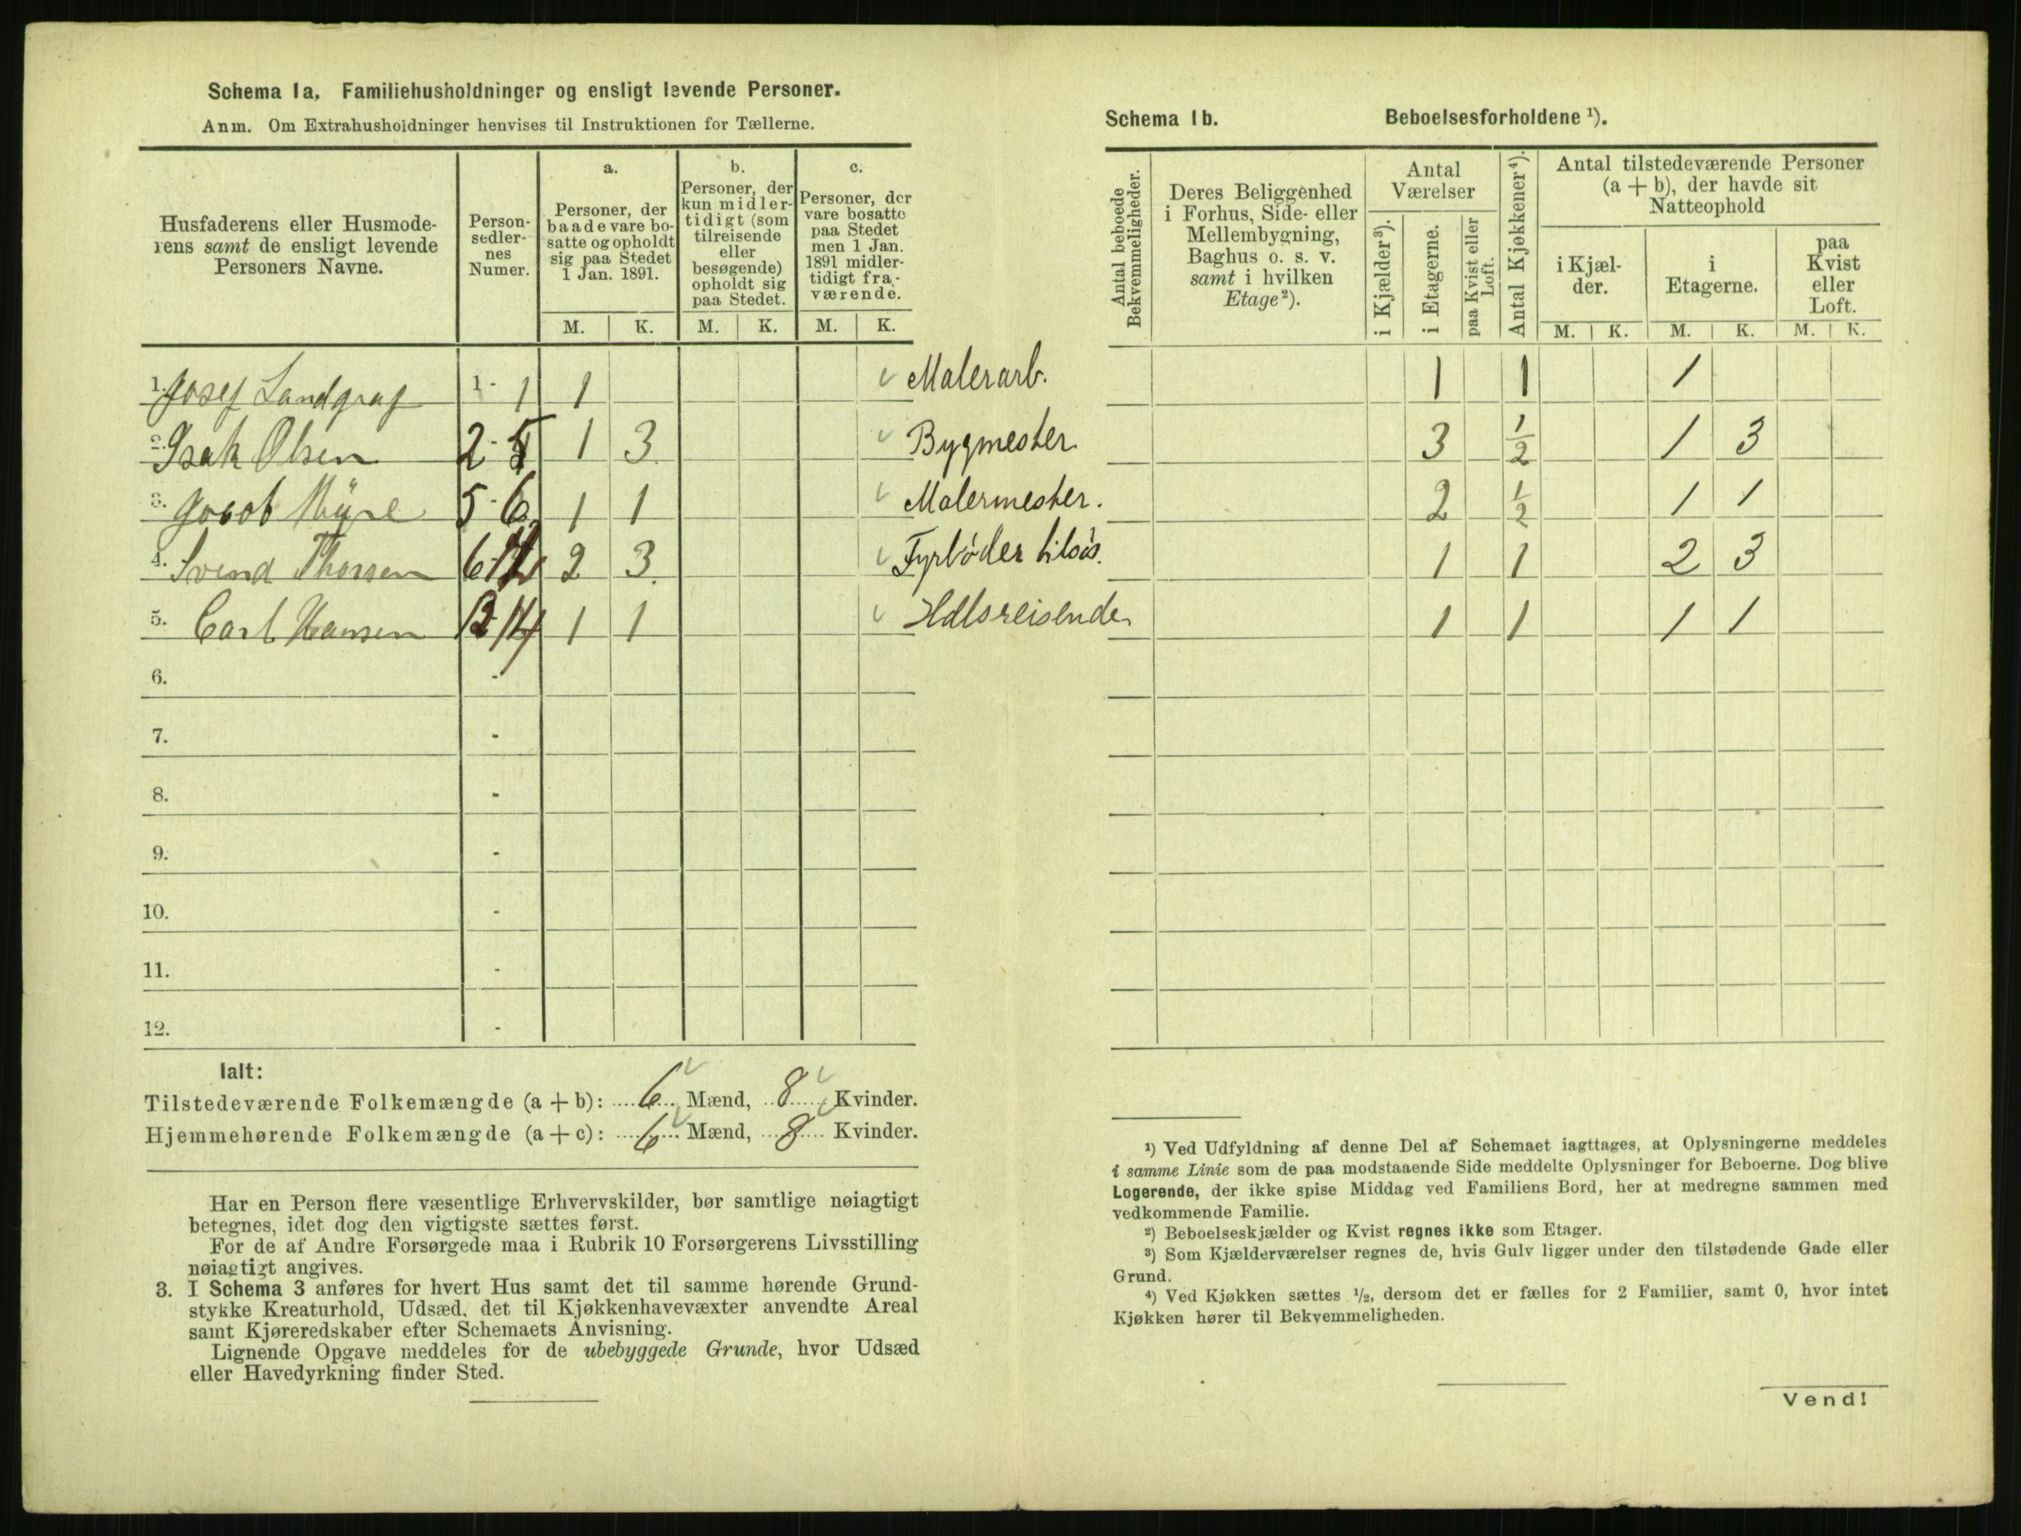 Schema 1a. Familiehusholdninger og ensligt levende Personer.
Anm. Om Extrahusholdninger henvises til Instruktionen for Tællerne.
Husfaderens eller Husmode-
rens samt de ensligt levende
Personers Navne.
Person-
sedler-
nes
Numer.
a.
Personer, der
baade vare bo-
satte og opholdt
sig paa Stedet
1 Jan. 1891.
b.
Personer, der
kun midler-
tidigt (som
tilreisende
eller
besøgende)
opholdt sig
paa Stedet.
c.
Personer, der
vare bosatte
paa Stedet
men 1 Jan.
1891 midler-
tidigt fra-
værende.
M. K. M. K. M. K.
1. Josef Landgraf 1 - 1 1 Malerarb.
2. Isak Olsen 2 - 5 1 3 Bygmester
3. Jacob Myre 5 - 6 1 1 Malermester.
4. Svend Thorsen 2 3 Fyrbøder tilsøs.
5. Carl Hansen 1 1 Hdlsreisende
6. -
7. -
8. -
9. -
10. -
11. -
12. -
Ialt:
Tilstedeværende Folkemængde (a + b): 6 Mænd, 8 Kvinder.
Hjemmehørende Folkemængde (a + c): 6 Mænd, 8 Kvinder.
Har en Person flere væsentlige Erhvervskilder, bør samtlige nøiagtigt
betegnes, idet dog den vigtigste sættes først.
For de af Andre Forsørgede maa i Rubrik 10 Forsørgerens Livsstilling
nøiagtigt angives.
3. I Schema 3 anføres for hvert Hus samt det til samme hørende Grund-
stykke Kreaturhold, Udsæd, det til Kjøkkenhavevæxter anvendte Areal
samt Kjøreredskaber efter Schemaets Anvisning.
Lignende Opgave meddeles for de ubebyggede Grunde, hvor Udsæd
eller Havedyrkning finder Sted.
Schema 1b. Beboelsesforholdene ¹).
Antal beboede
Bekvemmeligheder.
Deres Beliggenhed
i Forhus, Side- eller
Mellembygning,
Baghus o. s. v.
samt i hvilken
Etage ²).
Antal
Værelser
i Kjælder ³).
i Etagerne.
paa Kvist eller
Loft.
Antal Kjøkkener ⁴).
Antal tilstedeværende Personer
(a + b), der havde sit
Natteophold
i Kjæl-
der.
i
Etagerne.
paa
Kvist
eller
Loft.
M. K. M. K. M. K.
1 1 1
3 ½ 1 3
2 ½ 1 1
1 1 2 3
1 1 1 1
¹) Ved Udfyldning af denne Del af Schemaet iagttages, at Oplysningerne meddeles
i samme Linie som de paa modstaaende Side meddelte Oplysninger for Beboerne. Dog blive
Logerende, der ikke spise Middag ved Familiens Bord, her at medregne sammen med
vedkommende Familie.
²) Beboelseskjælder og Kvist regnes ikke som Etager.
³) Som Kjælderværelser regnes de, hvis Gulv ligger under den tilstødende Gade eller
Grund.
⁴) Ved Kjøkken sættes ½, dersom det er fælles for 2 Familier, samt 0, hvor intet
Kjøkken hører til Bekvemmeligheden.
Vend!